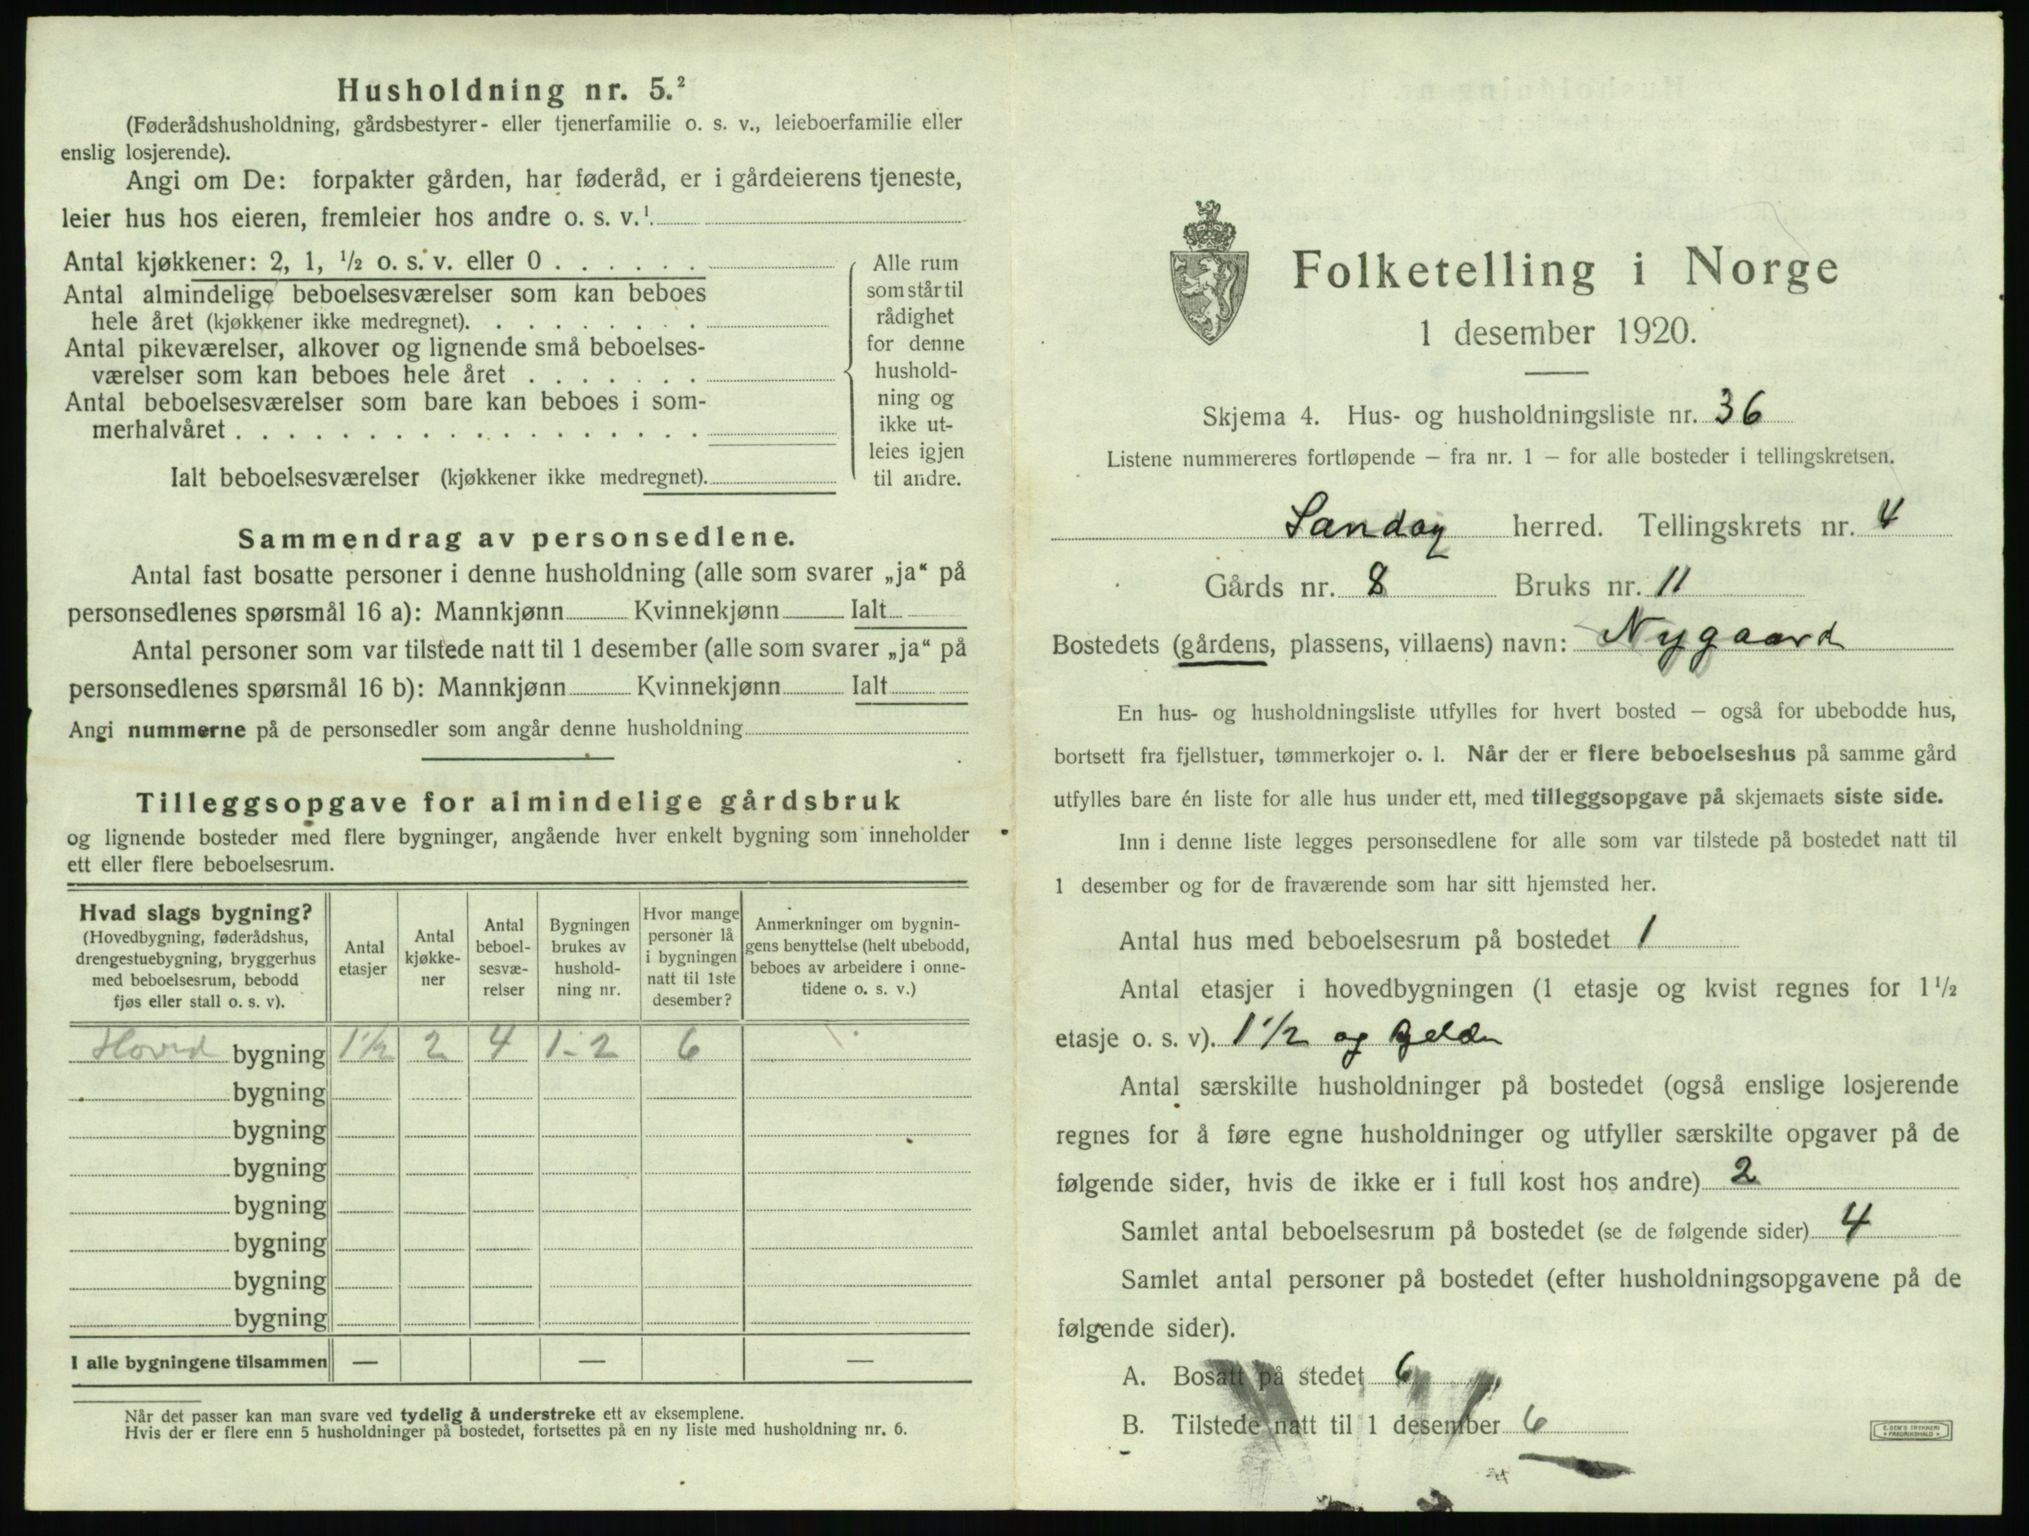 Husholdning nr. 5.²
(Føderådshusholdning, gårdsbestyrer- eller tjenerfamilie o. s. v., leieboerfamilie eller
enslig losjerende).
Angi om De: forpakter gården, har føderåd, er i gårdeierens tjeneste,
leier hus hos eieren, fremleier hos andre o. s. v.¹
Antal kjøkkener: 2, 1, ½ o. s. v. eller 0 . . . . . .
Antal almindelige beboelsesværelser som kan beboes
hele året (kjøkkener ikke medregnet). . . . . . . . .
Antal pikeværelser, alkover og lignende små beboelses-
værelser som kan beboes hele året . . . . . . .
Antal beboelsesværelser som bare kan beboes i som-
merhalvåret . . . . . . . . . . . . . . . . . .
Ialt beboelsesværelser (kjøkkener ikke medregnet).
Alle rum
som står til
rådighet
for denne
hushold-
ning og
ikke ut-
leies igjen
til andre.
Sammendrag av personsedlene.
Antal fast bosatte personer i denne husholdning (alle som svarer „ja“ på
personsedlenes spørsmål 16 a): Mannkjønn Kvinnekjønn Ialt
Antal personer som var tilstede natt til 1 desember (alle som svarer „ja“ på
personsedlenes spørsmål 16 b): Mannkjønn Kvinnekjønn Ialt
Angi nummerne på de personsedler som angår denne husholdning
Tilleggsopgave for almindelige gårdsbruk
og lignende bosteder med flere bygninger, angående hver enkelt bygning som inneholder
ett eller flere beboelsesrum.
Hvad slags bygning?
(Hovedbygning, føderådshus,
drengestuebygning, bryggerhus
med beboelsesrum, bebodd
fjøs eller stall o. s. v).
Antal
etasjer
Antal
kjøkke-
ner
Antal
beboel-
sesvæ-
relser
Bygningen
brukes av
hushold-
ning nr.
Hvor mange
personer lå
i bygningen
natt til 1ste
desember?
Anmerkninger om bygnin-
gens benyttelse (helt ubebodd,
beboes av arbeidere i onne-
tidene o. s. v.)
Hoved bygning 1½ 2 4 1-2 6
bygning
bygning
bygning
bygning
bygning
bygning
bygning
I alle bygningene tilsammen — — —
Når det passer kan man svare ved tydelig å understreke ett av eksemplene.
Hvis der er flere enn 5 husholdninger på bostedet, fortsettes på en ny liste med husholdning nr. 6.
Folketelling i Norge
1 desember 1920.
Skjema 4. Hus- og husholdningsliste nr. 36
Listene nummereres fortløpende – fra nr. 1 – for alle bosteder i tellingskretsen.
Sandøy herred. Tellingskrets nr. 4
Gårds nr. 8 Bruks nr. 11
Bostedets (gårdens, plassens, villaens) navn: Nygaard
En hus- og husholdningsliste utfylles for hvert bosted – også for ubebodde hus,
bortsett fra fjellstuer, tømmerkojer o. l. Når der er flere beboelseshus på samme gård
utfylles bare én liste for alle hus under ett, med tilleggsopgave på skjemaets siste side.
Inn i denne liste legges personsedlene for alle som var tilstede på bostedet natt til
1 desember og for de fraværende som har sitt hjemsted her.
Antal hus med beboelsesrum på bostedet 1
Antal etasjer i hovedbygningen (1 etasje og kvist regnes for 1½
etasje o. s. v). 1½ og
Antal særskilte husholdninger på bostedet (også enslige losjerende
regnes for å føre egne husholdninger og utfyller særskilte opgaver på de
følgende sider, hvis de ikke er i full kost hos andre) 2
Samlet antal beboelsesrum på bostedet (se de følgende sider) 4
Samlet antal personer på bostedet (efter husholdningsopgavene på de
følgende sider).
A. Bosatt på stedet 6
B. Tilstede natt til 1 desember 6